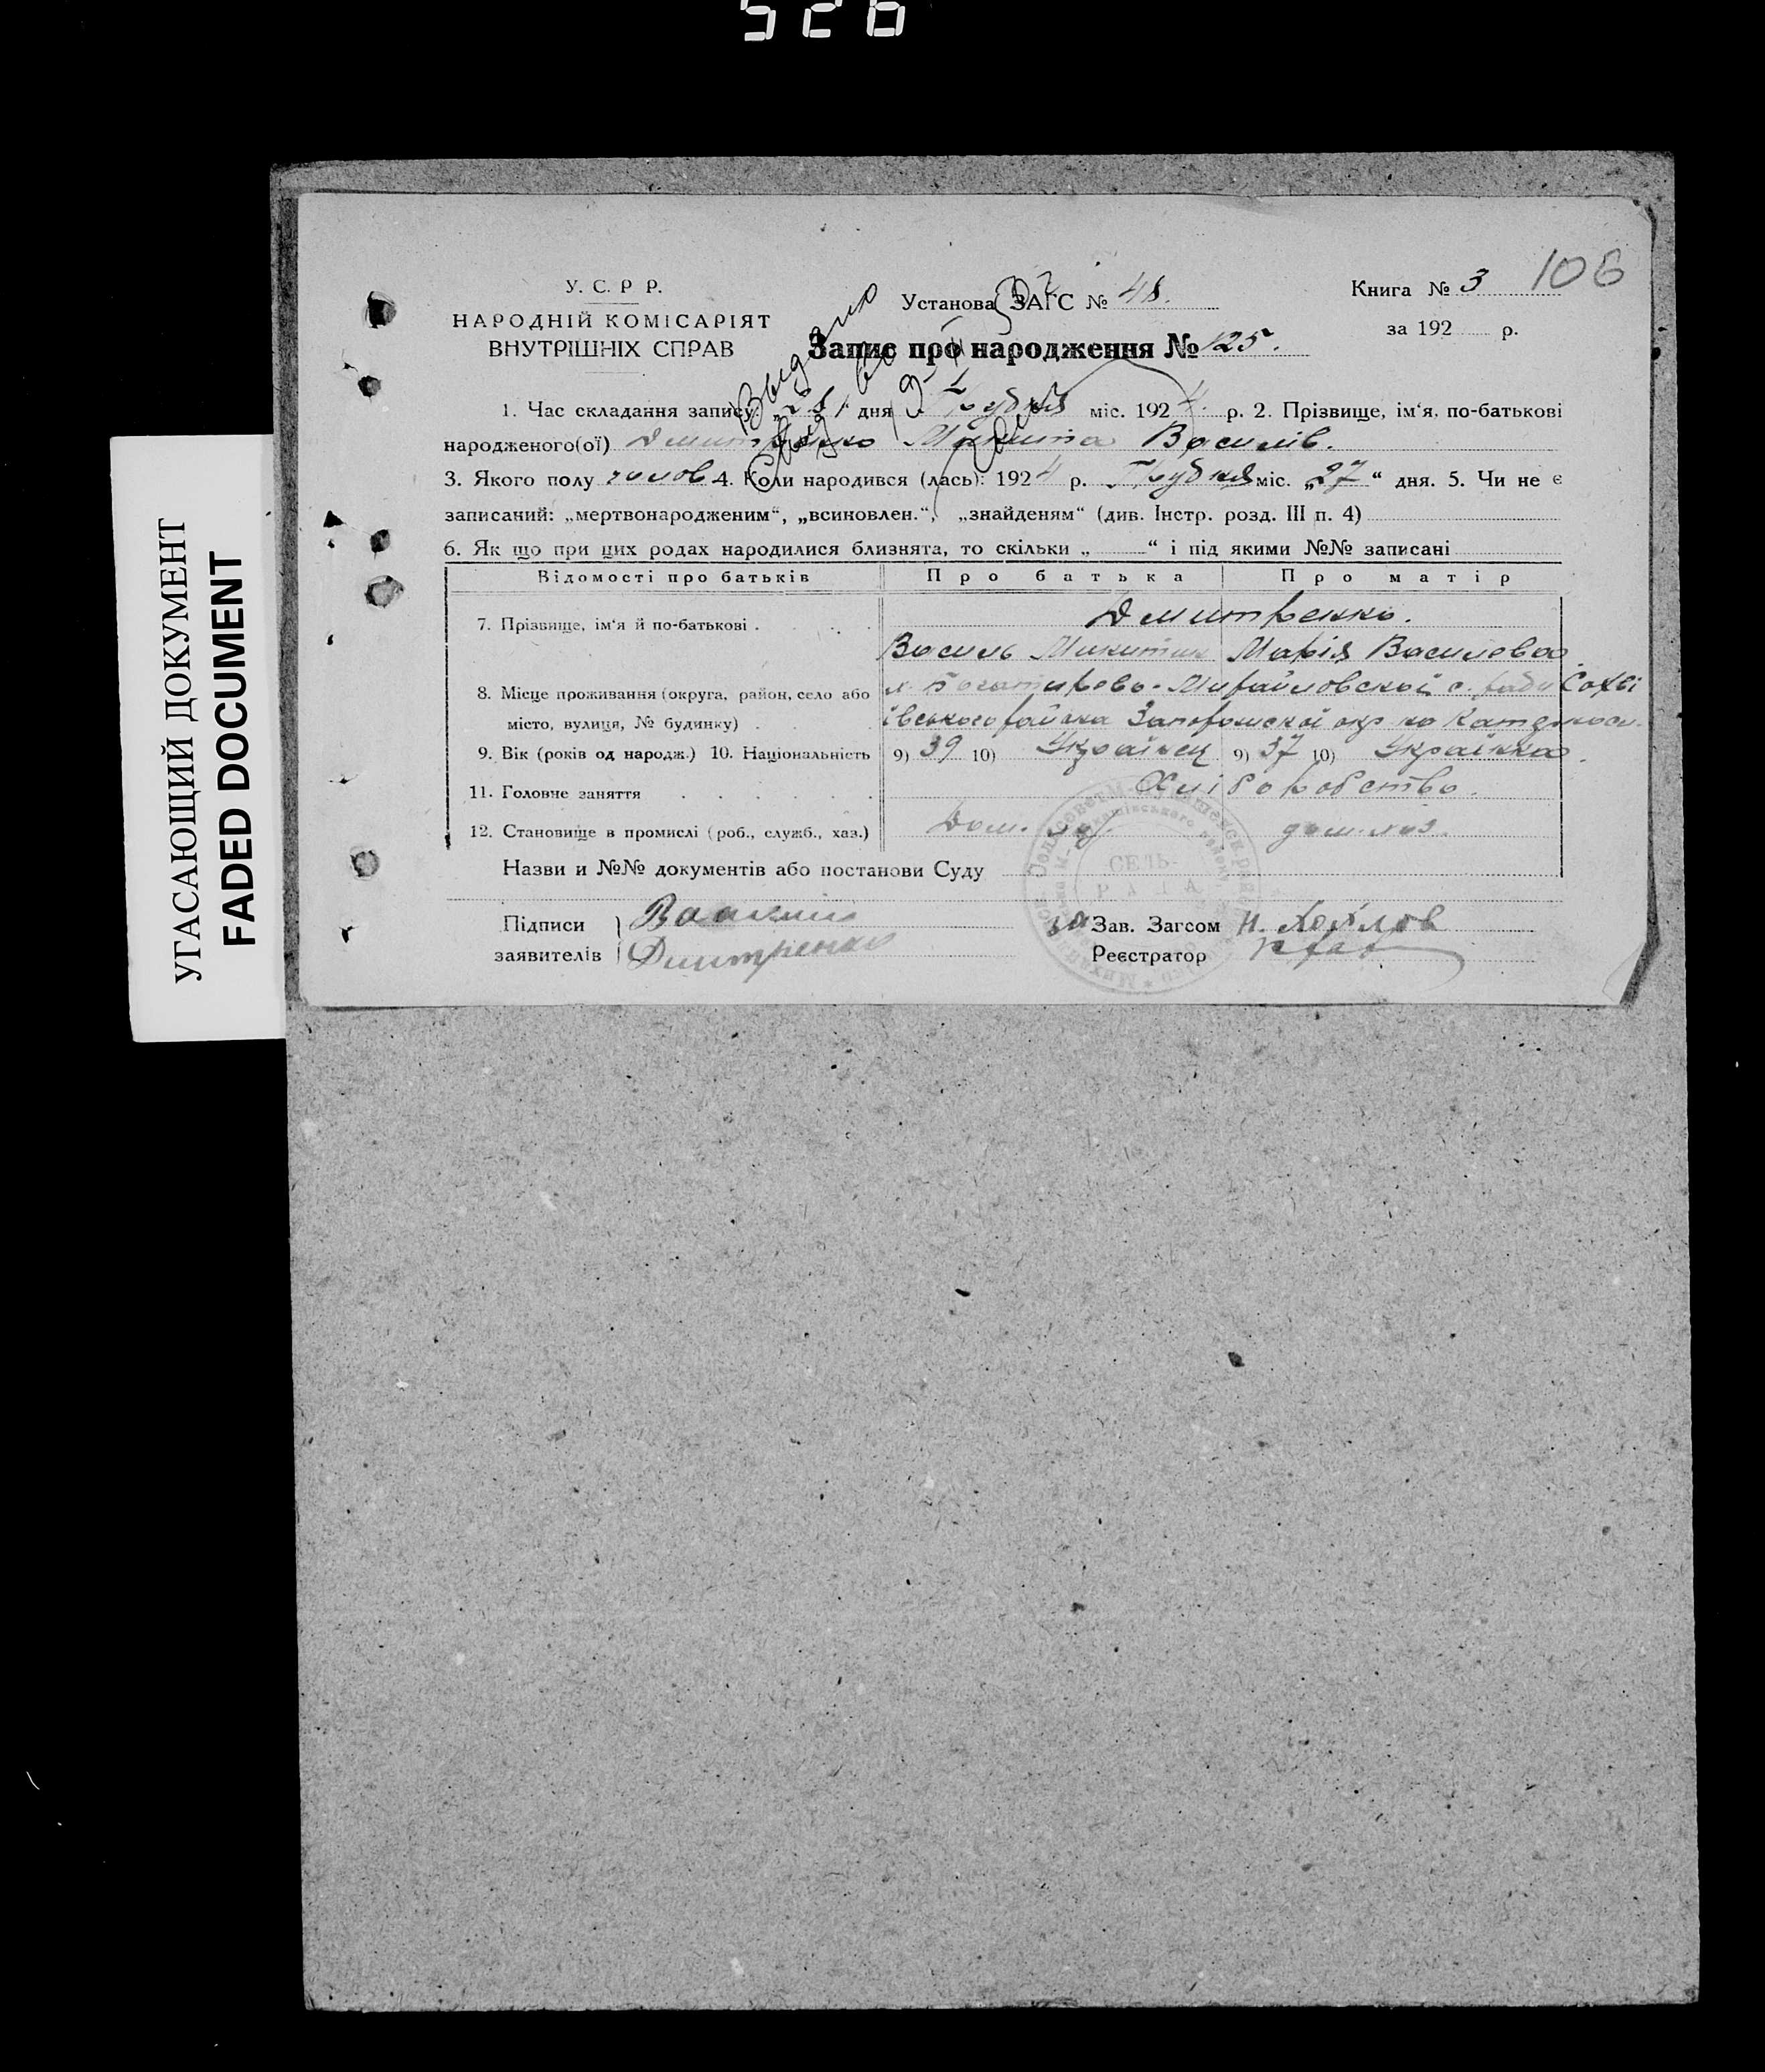 526
УГАСАЮЩИЙ ДОКУМЕНТ
FADED DOCUMENT
106
У. С. Р Р.
НАРОДНІЙ КОМІСАРІЯТ
ВНУТРІШНІХ СПРАВ
Установа ЗАГС № 48.
Книга № 3
за 192 р.
Запис про народження № 125.
Выдано
1. Час складання запису: дня Грудня міс. 1924 р. 2. Прізвище, ім‘я, по-батькові
народженого(ої) Дмитренко Микита Василів.
3. Якого полу чолов 4. Коли народився (лась): 1924 р. Грудня міс. „27“ дня. 5. Чи не є
записаний: „мертвонародженим“, „всиновлен.“, „знайденям“ (див. Інстр. розд. III п. 4)
6. Як що при цих родах народилися близнята, то скільки „ “ і під якими №№ записані
Відомості про батьків Про батька Про матір
7. Прізвище, ім‘я й по-батькові . . . . Дмитренко.
Василь Микитин Марія Василева
8. Місце проживання (округа, район, село або
місто, вулиця, № будинку) . . .
9. Вік (років од народж.) 10. Національність 9) 39 10) Українец 9) 37 10) Українка.
11. Головне заняття . . . . . . Хліборобство.
12. Становище в промислі (роб., служб., хаз.) Дом. дом. хаз.
Назви и №№ документів або постанови Суду
СЕЛЬ-
РАДА
Підписи
заявителів
Дмитренко
за Зав. Загсом Н. Хохлов
Реєстратор